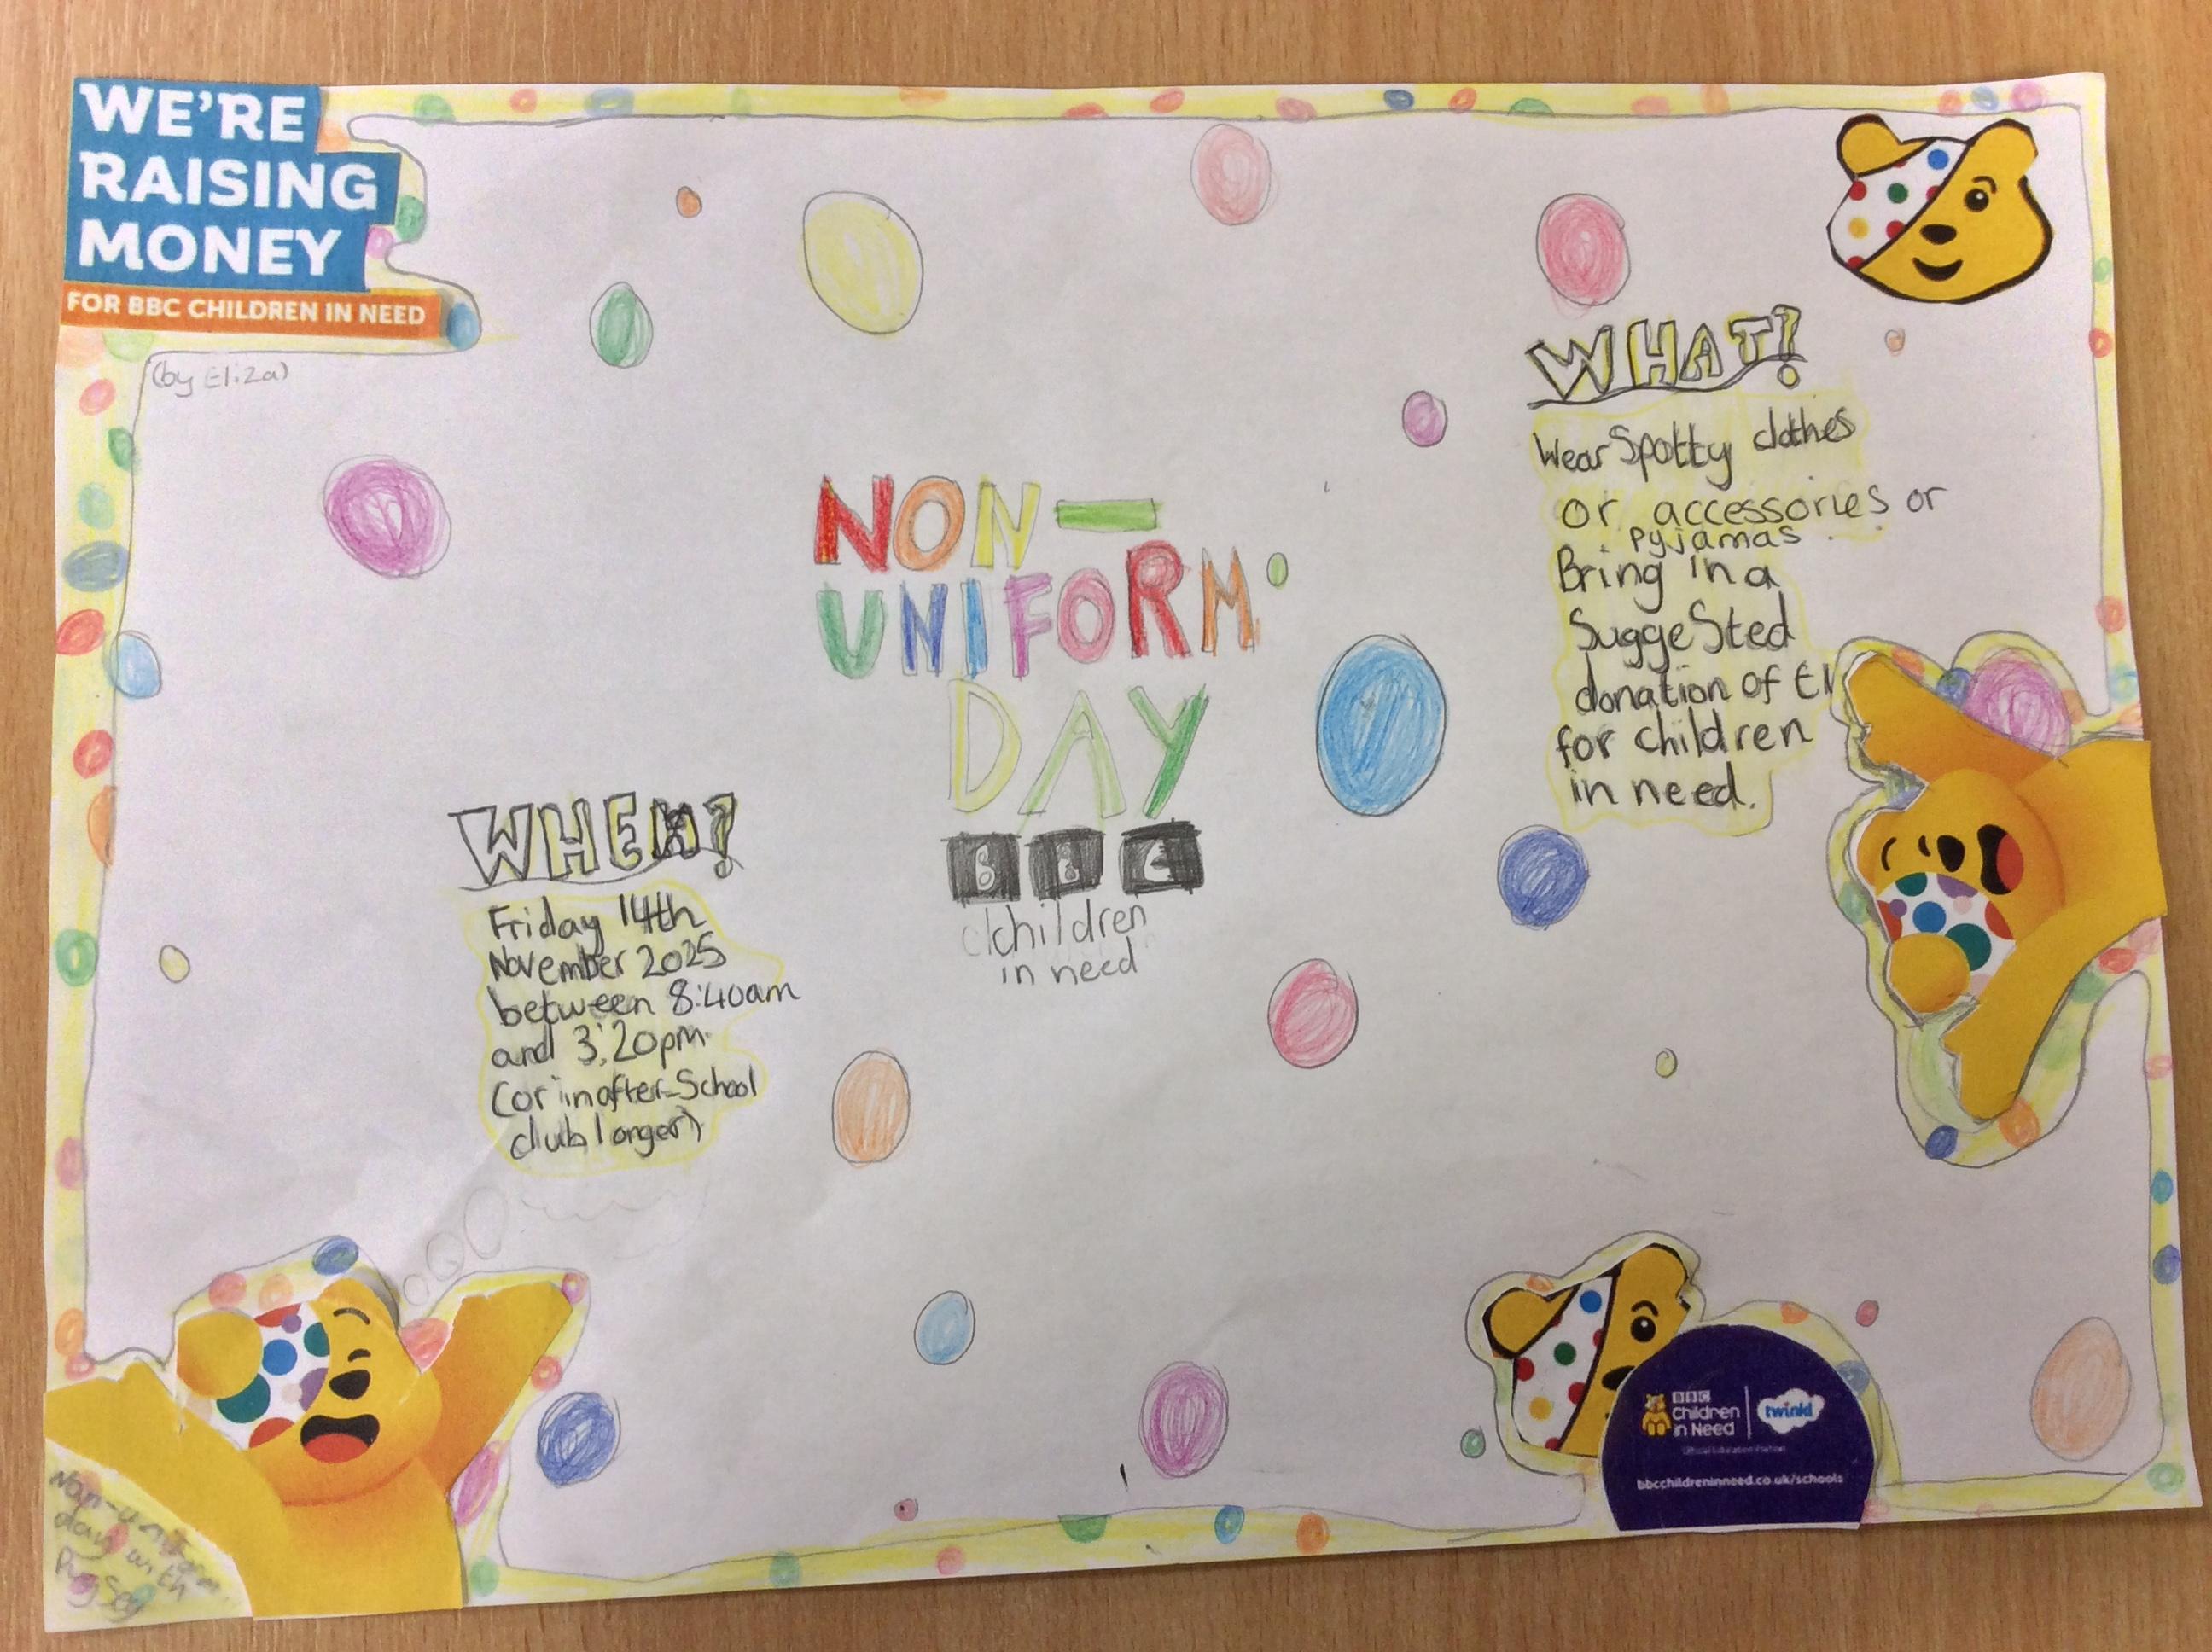 WE'RE
RAISING
MONEY
FOR BBC CHILDREN IN NEED
(by Eliza)
NON-
UNIFORM
DAY
BBC
children
in need
WHAT?
Wear Spotty clothes
or accessories or
pyjamas.
Bring in a
SuggeSted
donation of £1
for children
in need.
WHEN?
Friday 14th
November 2025
between 8:40am
and 3:20pm
(or in after-School
club longer)
Non-uniform
day with
BBC
Children
in Need
twinkl
Official Education Partner
bbcchildreninneed.co.uk/schools